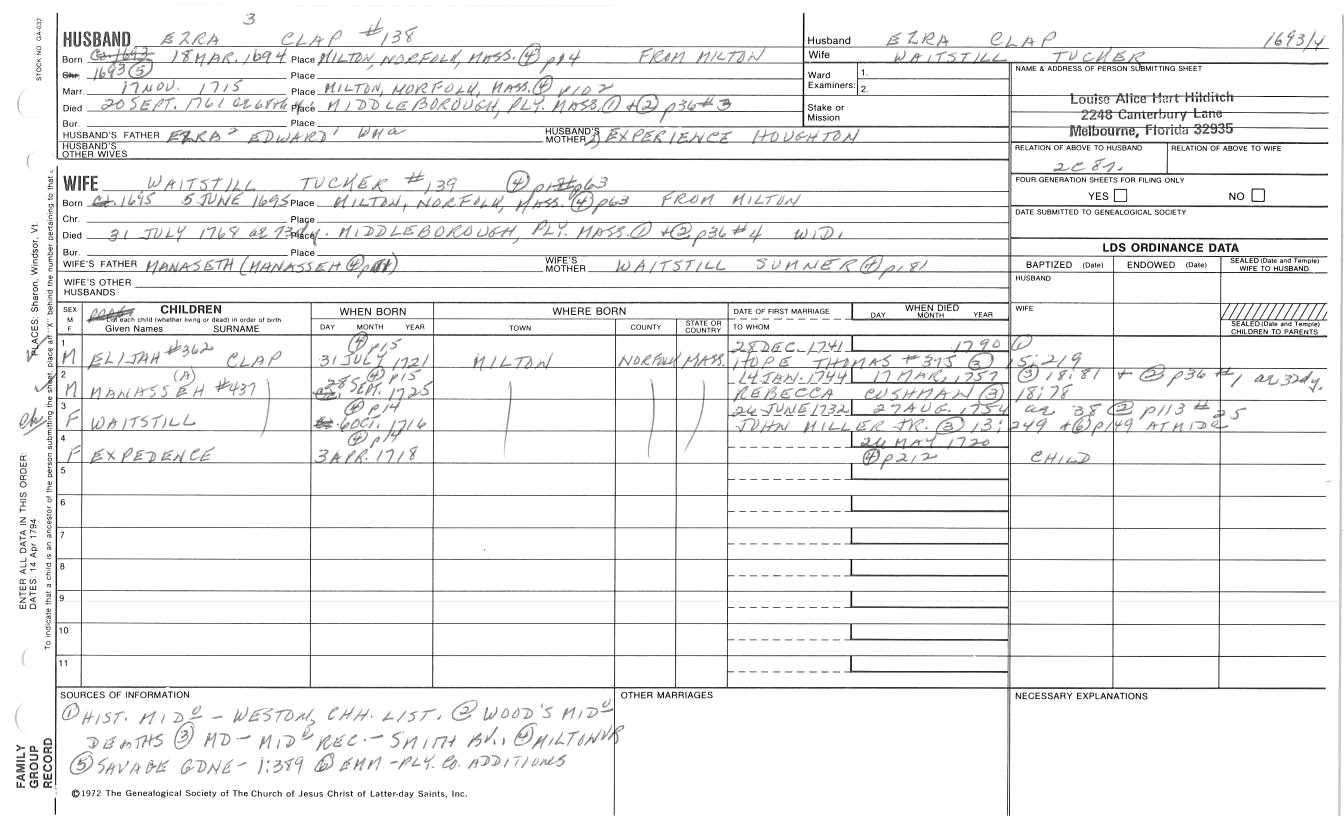 3
STOCK NO. GA-037
HUSBAND EZRA CLAP #138
Born Ca. 1693 18 MAR. 1694 Place MILTON, NORFOLK, MASS. ④ p14 FROM MILTON
Chr. 1693 ⑤ Place
Marr. 17 NOV. 1715 Place MILTON, NORFOLK, MASS. ④ p102
Died 20 SEPT. 1761 ae 68th Place MIDDLEBOROUGH, PLY. MASS. ① + ② p36 #3
Bur. Place
HUSBAND'S FATHER EZRA² EDWARD¹ HUSBAND'S MOTHER EXPERIENCE HOUGHTON
HUSBAND'S OTHER WIVES
Husband EZRA CLAP 1693/4
Wife WAITSTILL TUCKER
Ward 1.
Examiners: 2.
Stake or Mission
NAME & ADDRESS OF PERSON SUBMITTING SHEET
Louise Alice Hart Hilditch
2248 Canterbury Lane
Melbourne, Florida 32935
RELATION OF ABOVE TO HUSBAND RELATION OF ABOVE TO WIFE
2C8r.
FOUR GENERATION SHEETS FOR FILING ONLY
YES NO
DATE SUBMITTED TO GENEALOGICAL SOCIETY
WIFE WAITSTILL TUCKER #139 ④ p63
Born Ca. 1695 5 JUNE 1695 Place MILTON, NORFOLK, MASS. ④ p63 FROM MILTON
Chr. Place
Died 31 JULY 1768 ae 73dy. Place MIDDLEBOROUGH, PLY. MASS. ① + ② p36 #4 WID.
Bur. Place
WIFE'S FATHER MANASETH (MANASSEH ④) WIFE'S MOTHER WAITSTILL SUMNER ④ p181
WIFE'S OTHER HUSBANDS
LDS ORDINANCE DATA
BAPTIZED (Date) ENDOWED (Date) SEALED (Date and Temple) WIFE TO HUSBAND
HUSBAND
WIFE
SEALED (Date and Temple) CHILDREN TO PARENTS
SEX M F CHILDREN List each child (whether living or dead) in order of birth Given Names SURNAME
WHEN BORN DAY MONTH YEAR
WHERE BORN TOWN COUNTY STATE OR COUNTRY
DATE OF FIRST MARRIAGE TO WHOM
WHEN DIED DAY MONTH YEAR
1 M ELIJAH #362 CLAP ④ p15 31 JULY 1721 MILTON NORFOLK MASS. 28 DEC. 1741 1790 ①
HOPE THOMAS #375 ③ 15:219
2 M MANASSEH #437 (A) ④ p15 28 SEPT. 1725 14 JAN. 1744 17 MAR. 1757 ③ 18:81 + ② p36 #1 ae 32dy.
REBECCA CUSHMAN ③ 18:78
3 F WAITSTILL ④ p14 6 OCT. 1716 26 JUNE 1732 27 AUG. 1754 ae 38 ② p113 #25
JOHN MILLER JR. ③ 13:249 + ⑥ p149 AT MIDᴼ
4 F EXPEDENCE ④ p14 3 APR. 1718 26 MAY 1720
④ p212 CHILD
5
6
7
8
9
10
11
SOURCES OF INFORMATION
① HIST. MIDᴼ – WESTON, CHH. LIST. ② WOOD'S MIDᴼ
DEATHS ③ MD – MIDᴼ REC. – SMITH BV., ④ MILTON VR
⑤ SAVAGE GDNE – 1:389 ⑥ EMM – PLY. CO. ADDITIONS
OTHER MARRIAGES
NECESSARY EXPLANATIONS
©1972 The Genealogical Society of The Church of Jesus Christ of Latter-day Saints, Inc.
FAMILY GROUP RECORD
ENTER ALL DATA IN THIS ORDER:
DATES: 14 Apr 1794
PLACES: Sharon, Windsor, Vt.
To indicate that a child is an ancestor of the person submitting the sheet, place an "X" behind the number pertaining to that